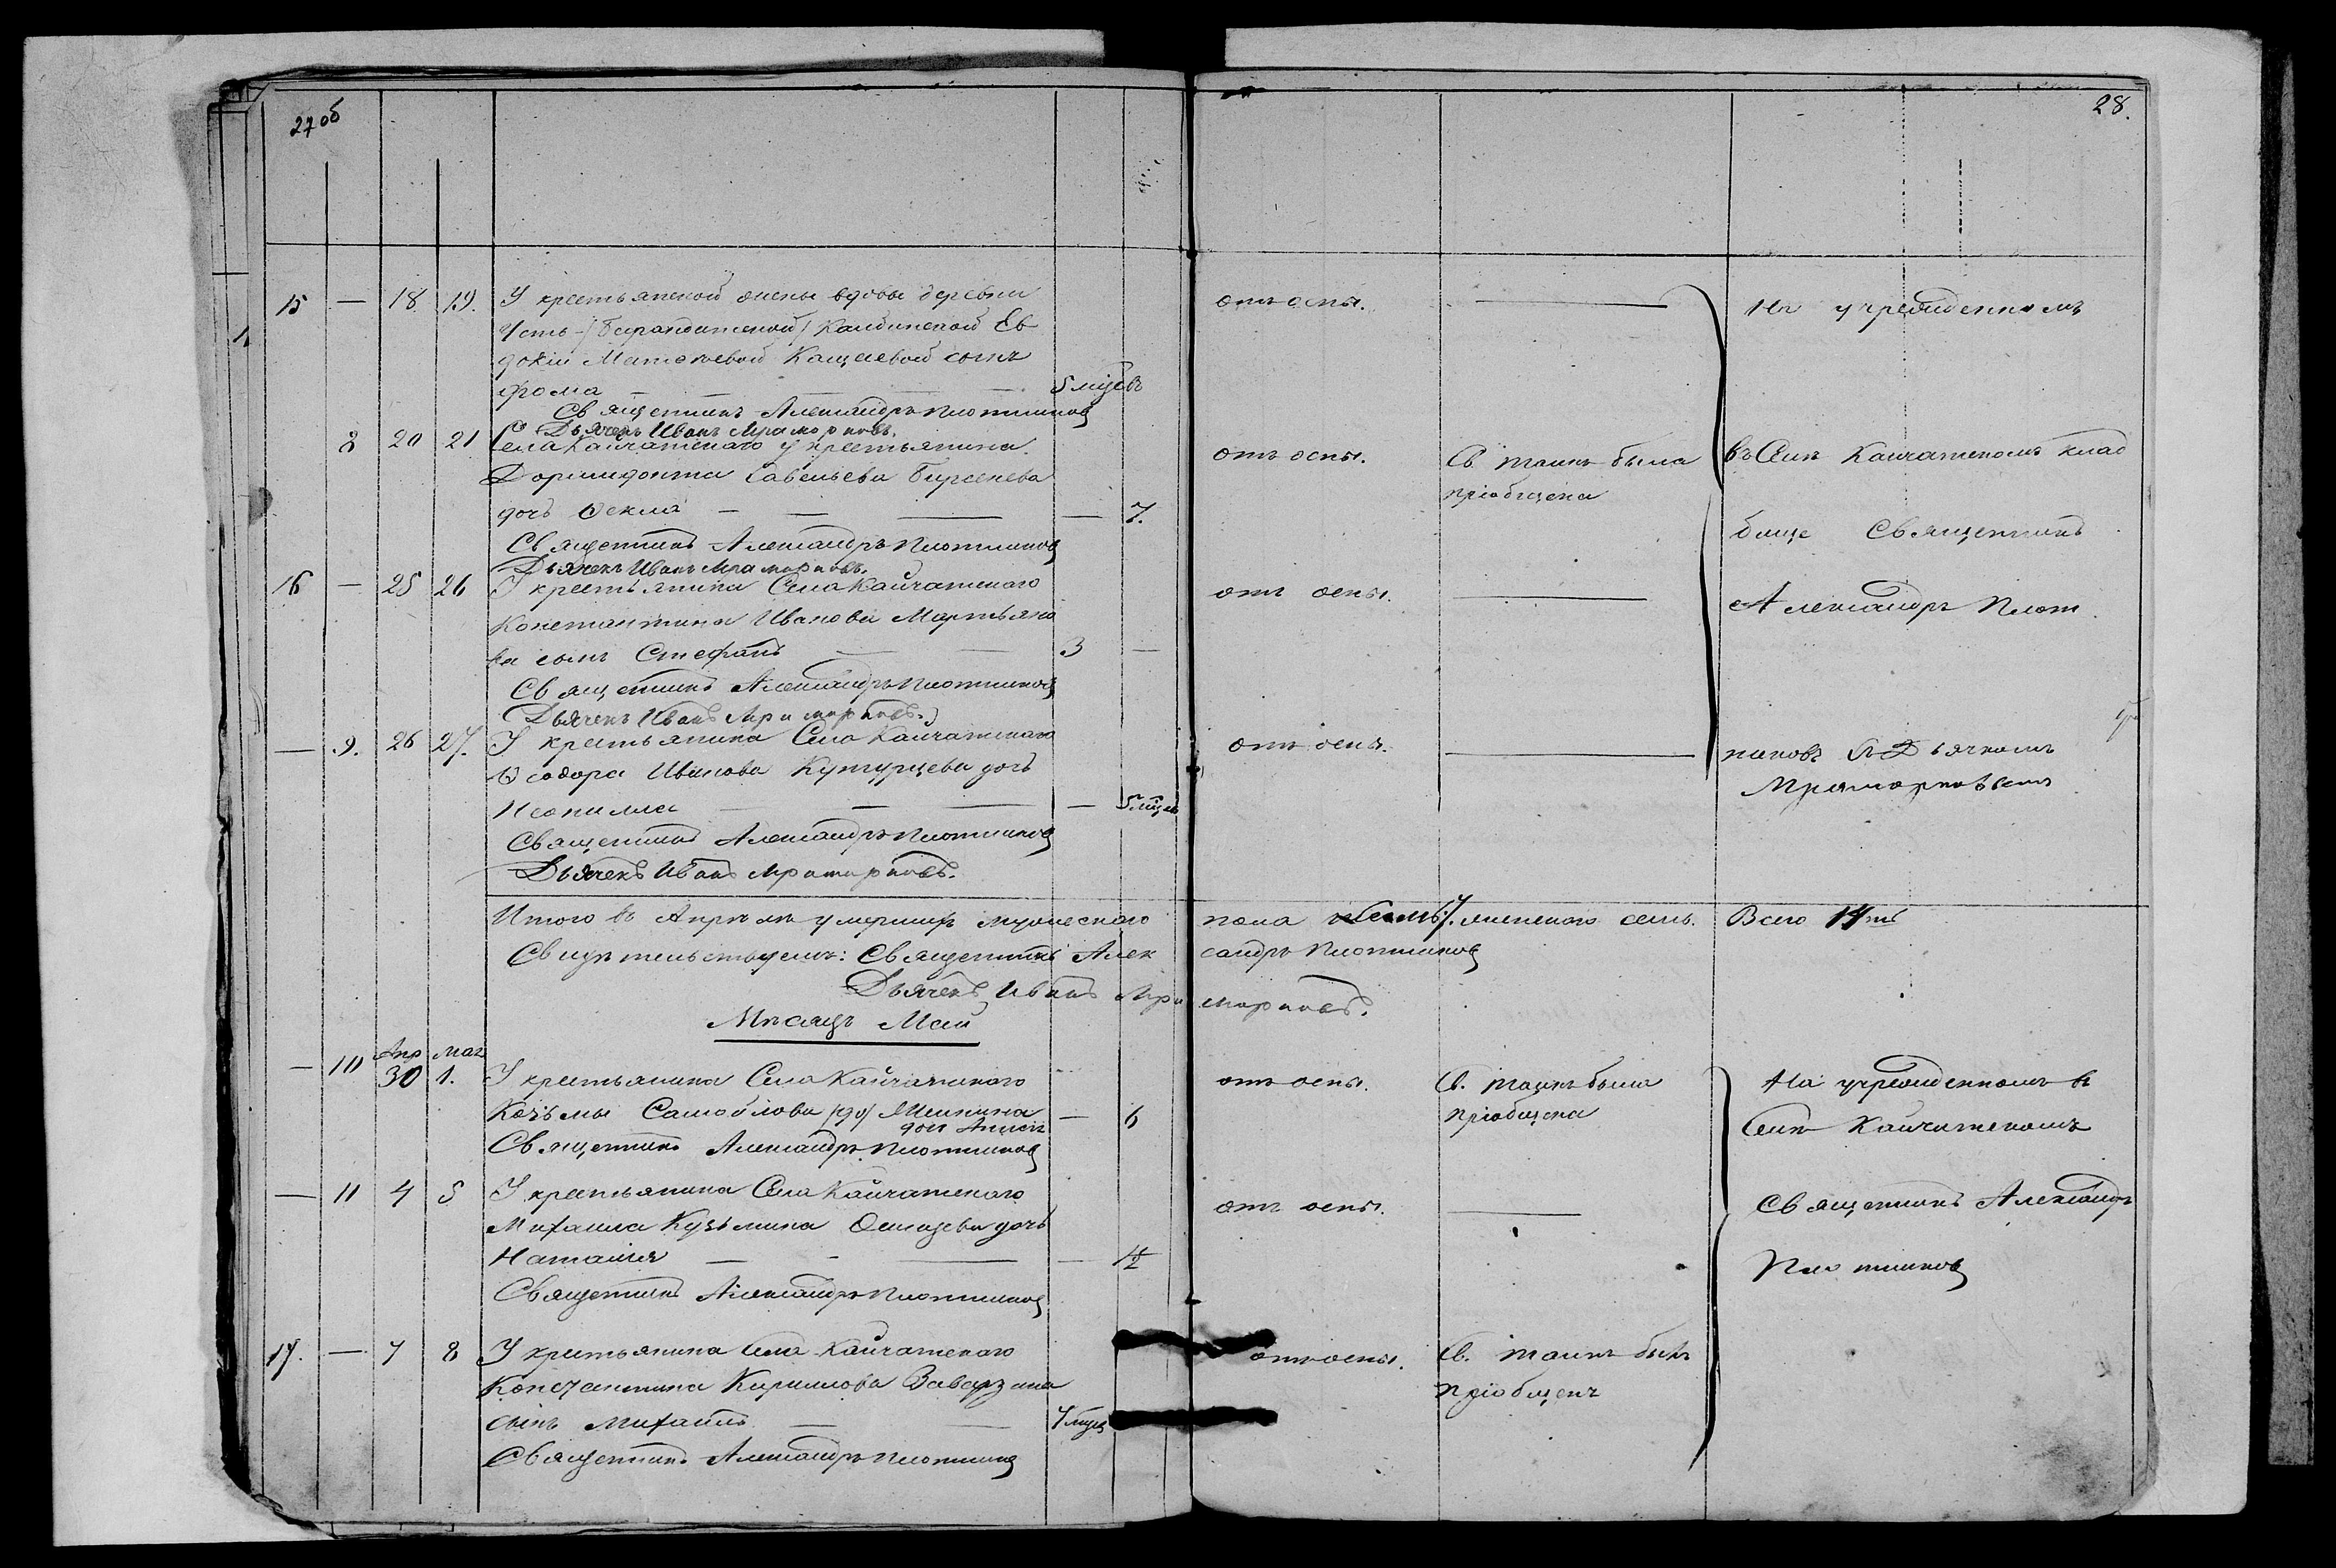 27 об
28.
15 — 18 19. У крестьянской жены вдовы деревни
Усть- Камбинской Ев
докіи Матвѣевой Кащаевой сынъ
Фома — — — 5 мѣсяцъ
отъ оспы. — На учрежденномъ
Священникъ Александръ Плотниковъ
Дьячекъ Иванъ Мраморновъ.
8 20 21. Села Кайчатскаго у крестьянина
отъ оспы. Св. таинъ была въ Селѣ Кайчатскомъ клад
Доримидонта Савельева Бирюкова
пріобщена
дочь Ѳекла — — — 7.
бище Священникъ
Священникъ Александръ Плотниковъ
Дьячекъ Иванъ Мраморновъ.
16 — 25 26 У крестьянина Села Кайчатскаго
отъ оспы. — Александръ Плот
Константина Иванова Мартьяно
ва сынъ Стефанъ — — 3 —
Священникъ Александръ Плотниковъ
Дьячекъ Иванъ Мраморновъ.
— 9. 26 27. У крестьянина Села Кайчатскаго
отъ оспы. — никовъ съ Дьячкомъ
Ѳеодора Иванова дочь
Мраморновымъ
Неонилла — — — 5 мѣсяц
Священникъ Александръ Плотниковъ
Дьячекъ Иванъ Мраморновъ.
Итого въ Апрѣлѣ умершихъ мужескаго пола 7. женскаго семь. Всего 14ть
Свидѣтельствуемъ: Священникъ Александръ Плотниковъ
Дьячекъ Иванъ Мраморновъ.
Мѣсяцъ Май
Апр мая
— 10 30 1. У крестьянина Села Кайчатскаго
отъ оспы. Св. таинъ была На учрежденномъ въ
Козьмы Самойлова — 6
дочь
пріобщена Селѣ Кайчатскомъ
Священникъ Александръ Плотниковъ
— 11 4 5 У крестьянина Села Кайчатскаго
отъ оспы. — Священникъ Александръ
Михаила Кузьмина дочь
Наталія — — — — ½
Плотниковъ
Священникъ Александръ Плотниковъ
17. — 7 8 У крестьянина Села Кайчатскаго
отъ оспы. Св. таинъ былъ
Константина Кирилова Заварзина
пріобщенъ
сынъ Михаилъ — — 7 мѣсяц
Священникъ Александръ Плотниковъ